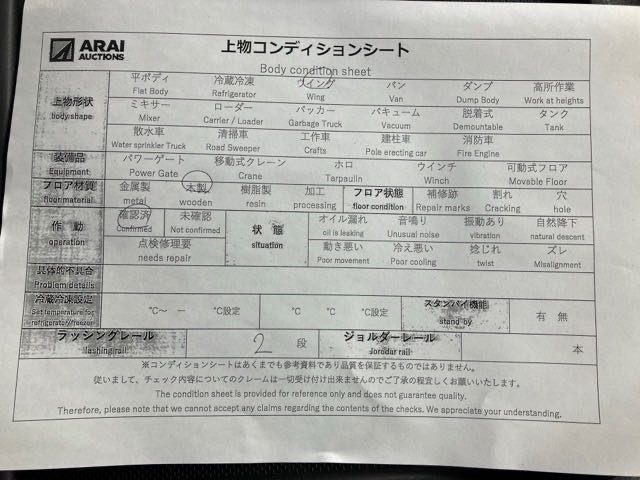 ARAI
AUCTIONS
上物コンディションシート
Body condition sheet
上物形状
body shape
平ボディ 冷蔵冷凍 ウイング バン ダンプ 高所作業
Flat Body Refrigerator Wing Van Dump Body Work at heights
ミキサー ローダー パッカー バキューム 脱着式 タンク
Mixer Carrier / Loader Garbage Truck Vacuum Demountable Tank
散水車 清掃車 工作車 建柱車 消防車
Water sprinkler Truck Road Sweeper Crafts Pole erecting car Fire Engine
装備品 パワーゲート 移動式クレーン ホロ ウインチ 可動式フロア
Equipment Power Gate Crane Tarpaulin Winch Movable Floor
フロア材質 金属製 木製 樹脂製 加工 フロア状態 補修跡 割れ 穴
floor material metal wooden resin processing floor condition Repair marks Cracking hole
作動 確認済 未確認 状態 オイル漏れ 音鳴り 振動あり 自然降下
operation Confirmed Not confirmed situation oil is leaking Unusual noise vibration natural descent
点検修理要 動き悪い 冷え悪い 捻じれ ズレ
needs repair Poor movement Poor cooling twist Misalignment
具体的不具合
Problem details
冷蔵冷凍設定 ℃～ － ℃設定 ℃ ℃ ℃設定 スタンバイ機能 有 無
Set temperature for refrigerator/freezer stand by
ラッシングレール 2 段 ジョルダーレール 本
lashing rail Jorodar rail
※コンディションシートはあくまでも参考資料であり品質を保証するものではありません。
従いまして、チェック内容についてのクレームは一切受け付け出来ませんのでご了承の程宜しくお願いいたします。
The condition sheet is provided for reference only and does not guarantee quality.
Therefore, please note that we cannot accept any claims regarding the contents of the checks. We appreciate your understanding.